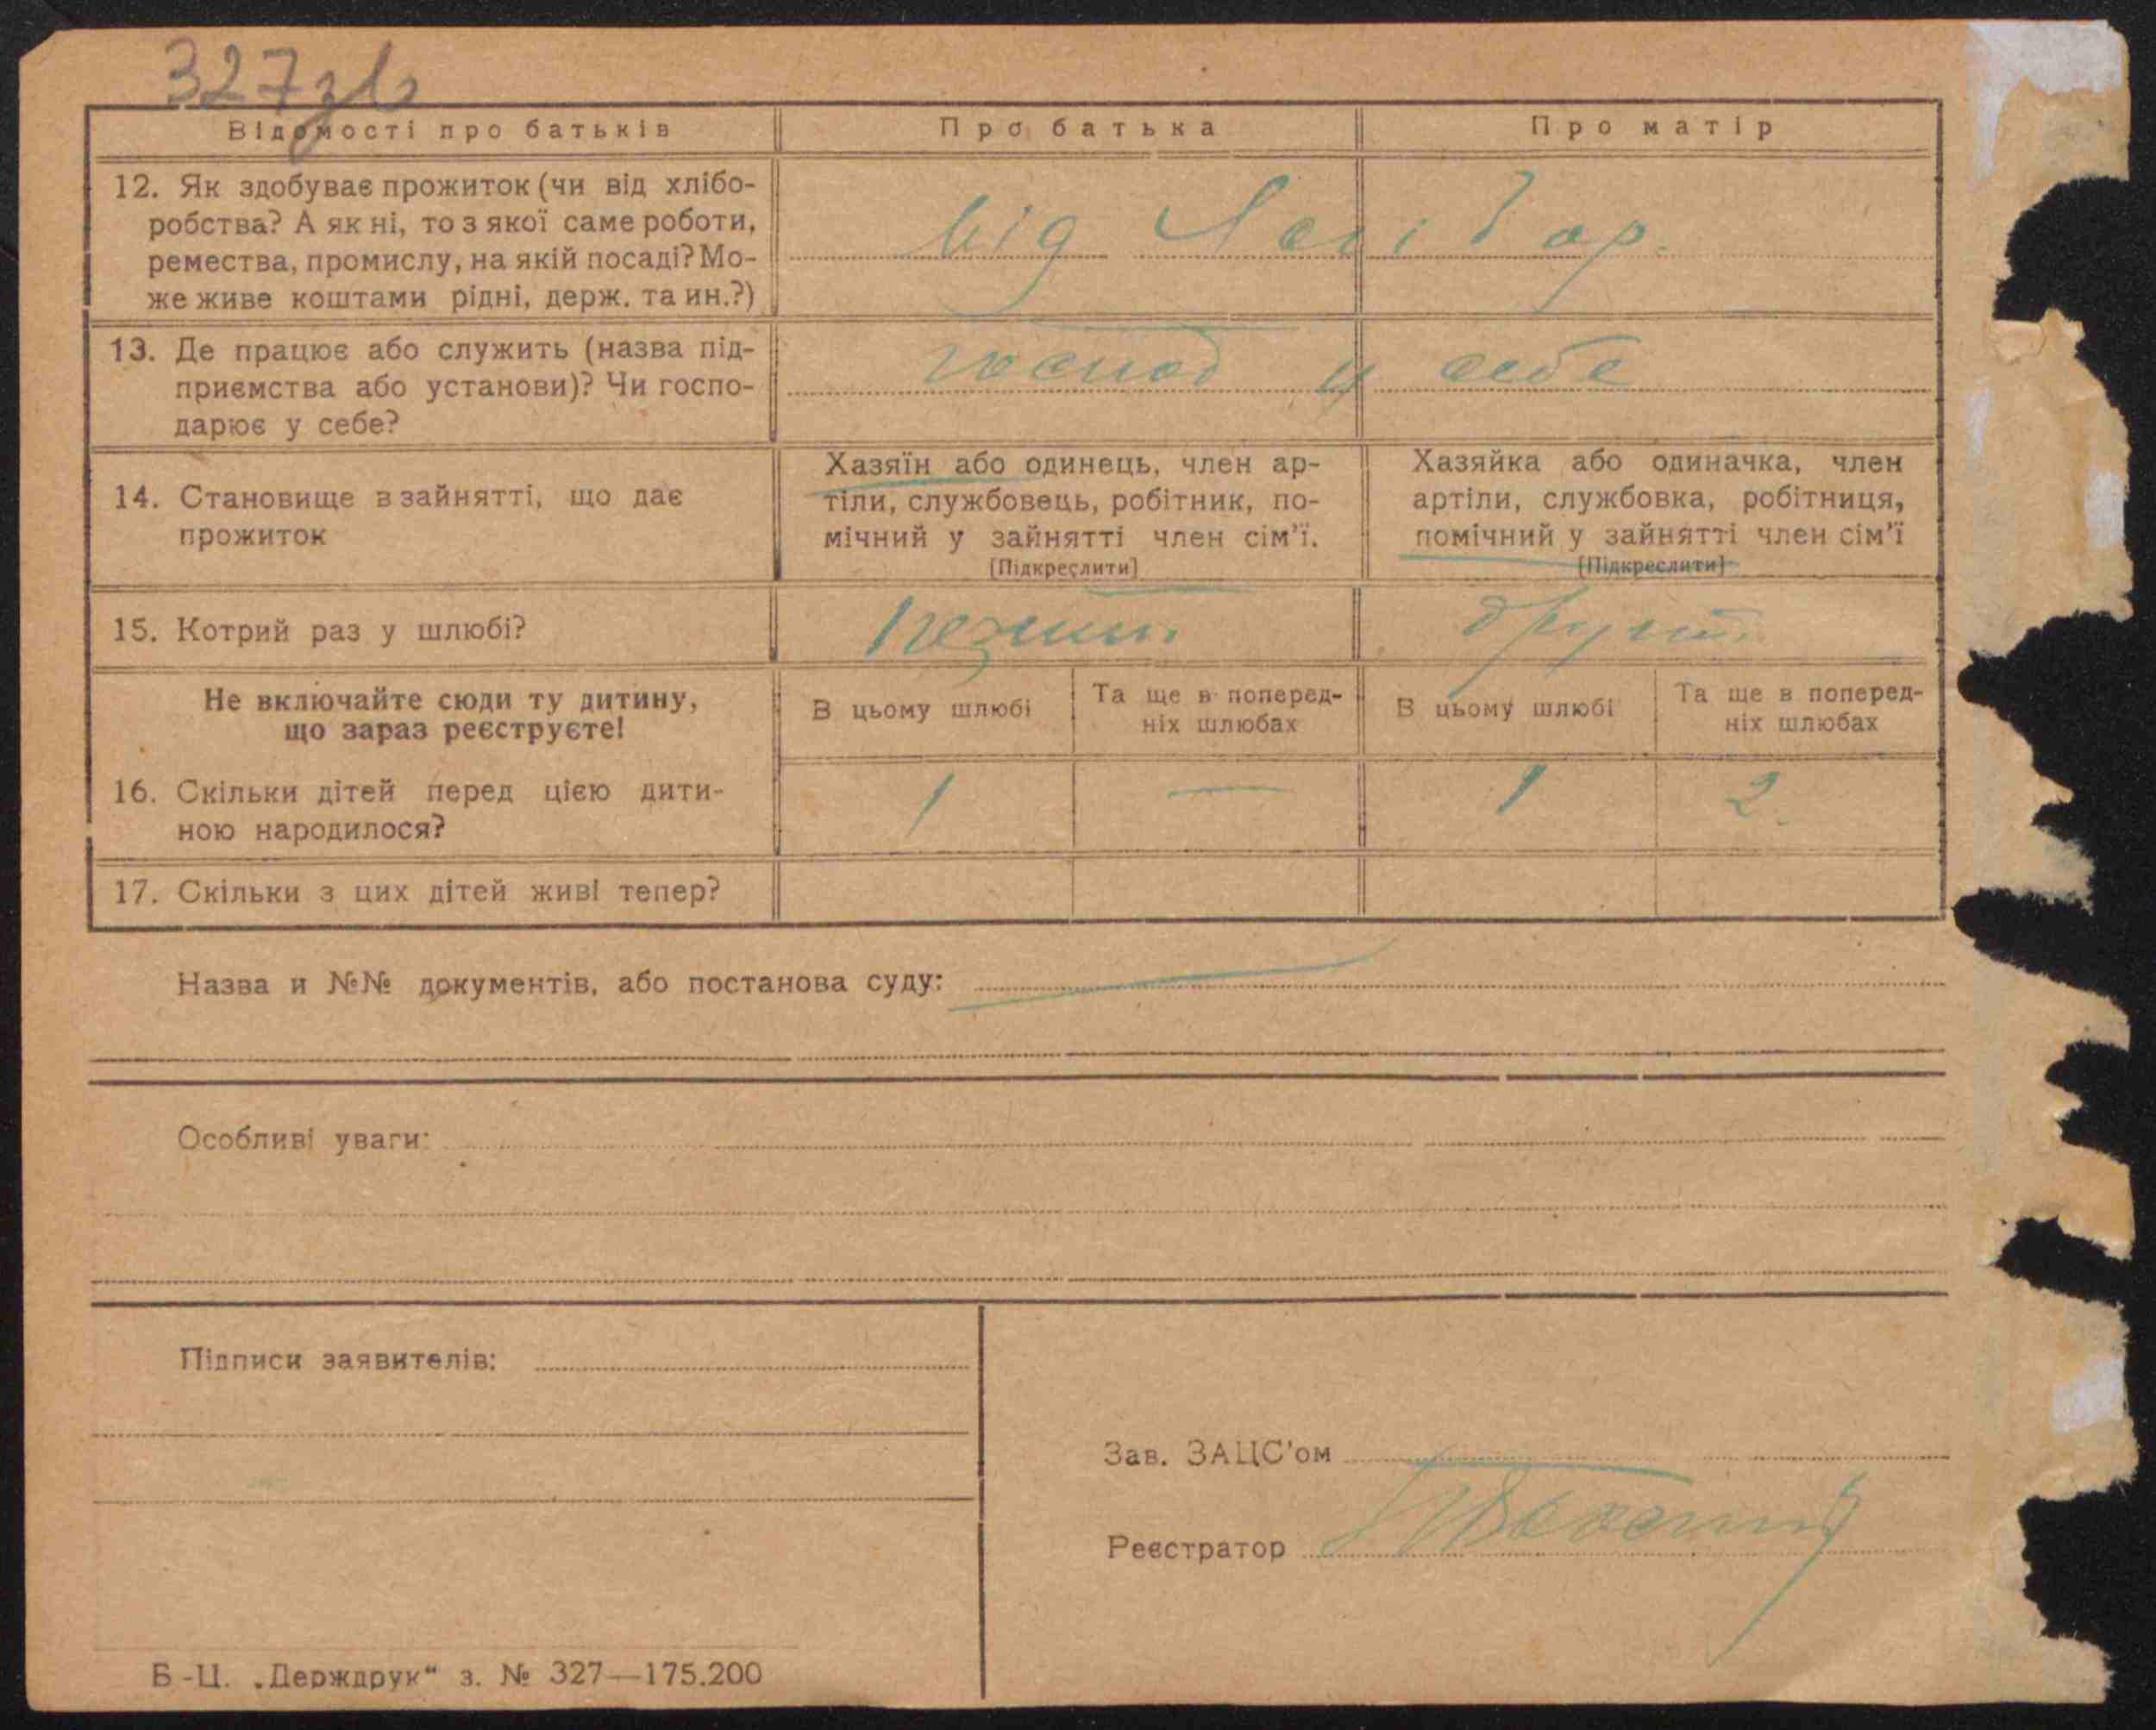 327зв
Відомості про батьків
Про батька
Про матір
12. Як здобуває прожиток (чи від хлібо-
робства? А як ні, то з якої саме роботи,
ремества, промислу, на якій посаді? Мо-
же живе коштами рідні, держ. та ин.?)
від хлібор.
13. Де працює або служить (назва під-
приємства або установи)? Чи госпо-
дарює у себе?
господ у себе
14. Становище в зайнятті, що дає
прожиток
Хазяїн або одинець, член ар-
тіли, службовець, робітник, по-
мічний у зайнятті член сім'ї.
[Підкреслити]
Хазяйка або одиначка, член
артіли, службовка, робітниця,
помічний у зайнятті член сім'ї
[Підкреслити]
15. Котрий раз у шлюбі?
Не включайте сюди ту дитину,
що зараз реєструєте!
В цьому шлюбі
Та ще в поперед-
ніх шлюбах
В цьому шлюбі
Та ще в поперед-
ніх шлюбах
16. Скільки дітей перед цією дити-
ною народилося?
1 — 1 2.
17. Скільки з цих дітей живі тепер?
Назва и №№ документів, або постанова суду:
Особливі уваги:
Підписи заявителів:
Зав. ЗАЦС'ом
Реєстратор
Б-Ц. „Держдрук“ з. № 327—175.200